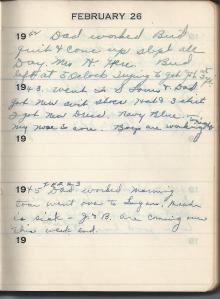 FEBRUARY 26
1942 Dad worked Bud
quit & come up slept all
Day. Mrs H Here. Bud
left at 5 o'clock trying to get
1943. Went to S Louis & Dad
got new suit shoes, had & 3 shirt
I got new Dress. Navy Blue.
my nose is sore. Boys are working
19
1945 Dad worked morning
Tom went over to
is sick - J. & B. are coming over
this week end.
19